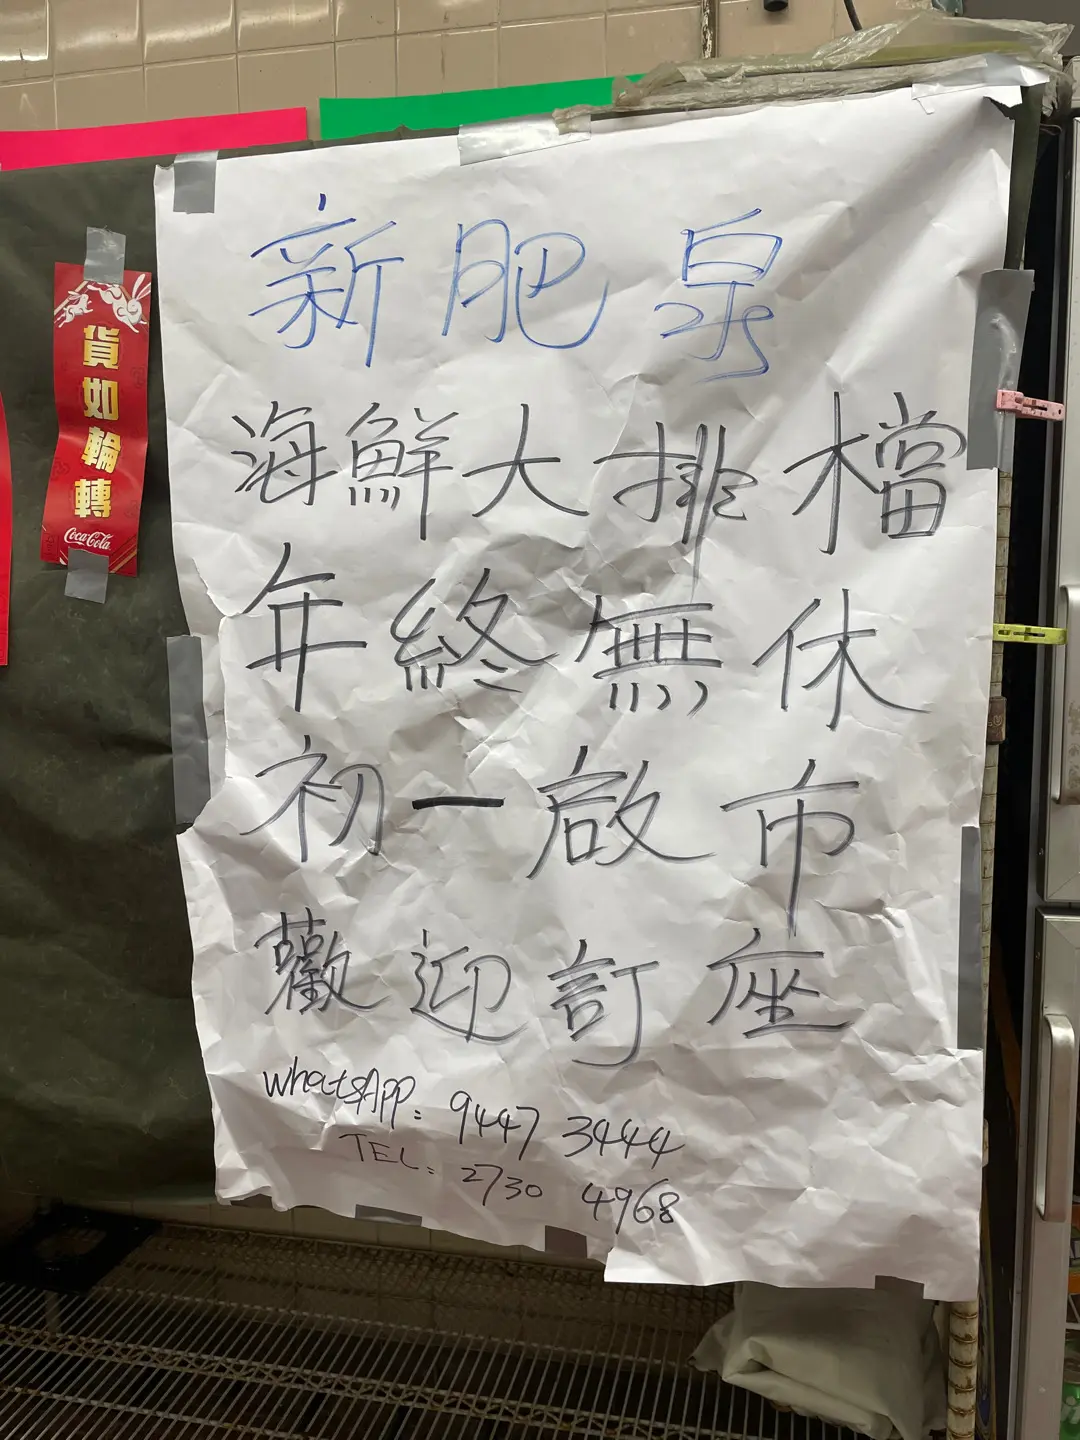 新肥泉
海鮮大排檔
年終無休
初一啟市
歡迎訂座
WhatsApp: 9447 3444
TEL: 2730 4968
貨如輪轉
Coca-Cola